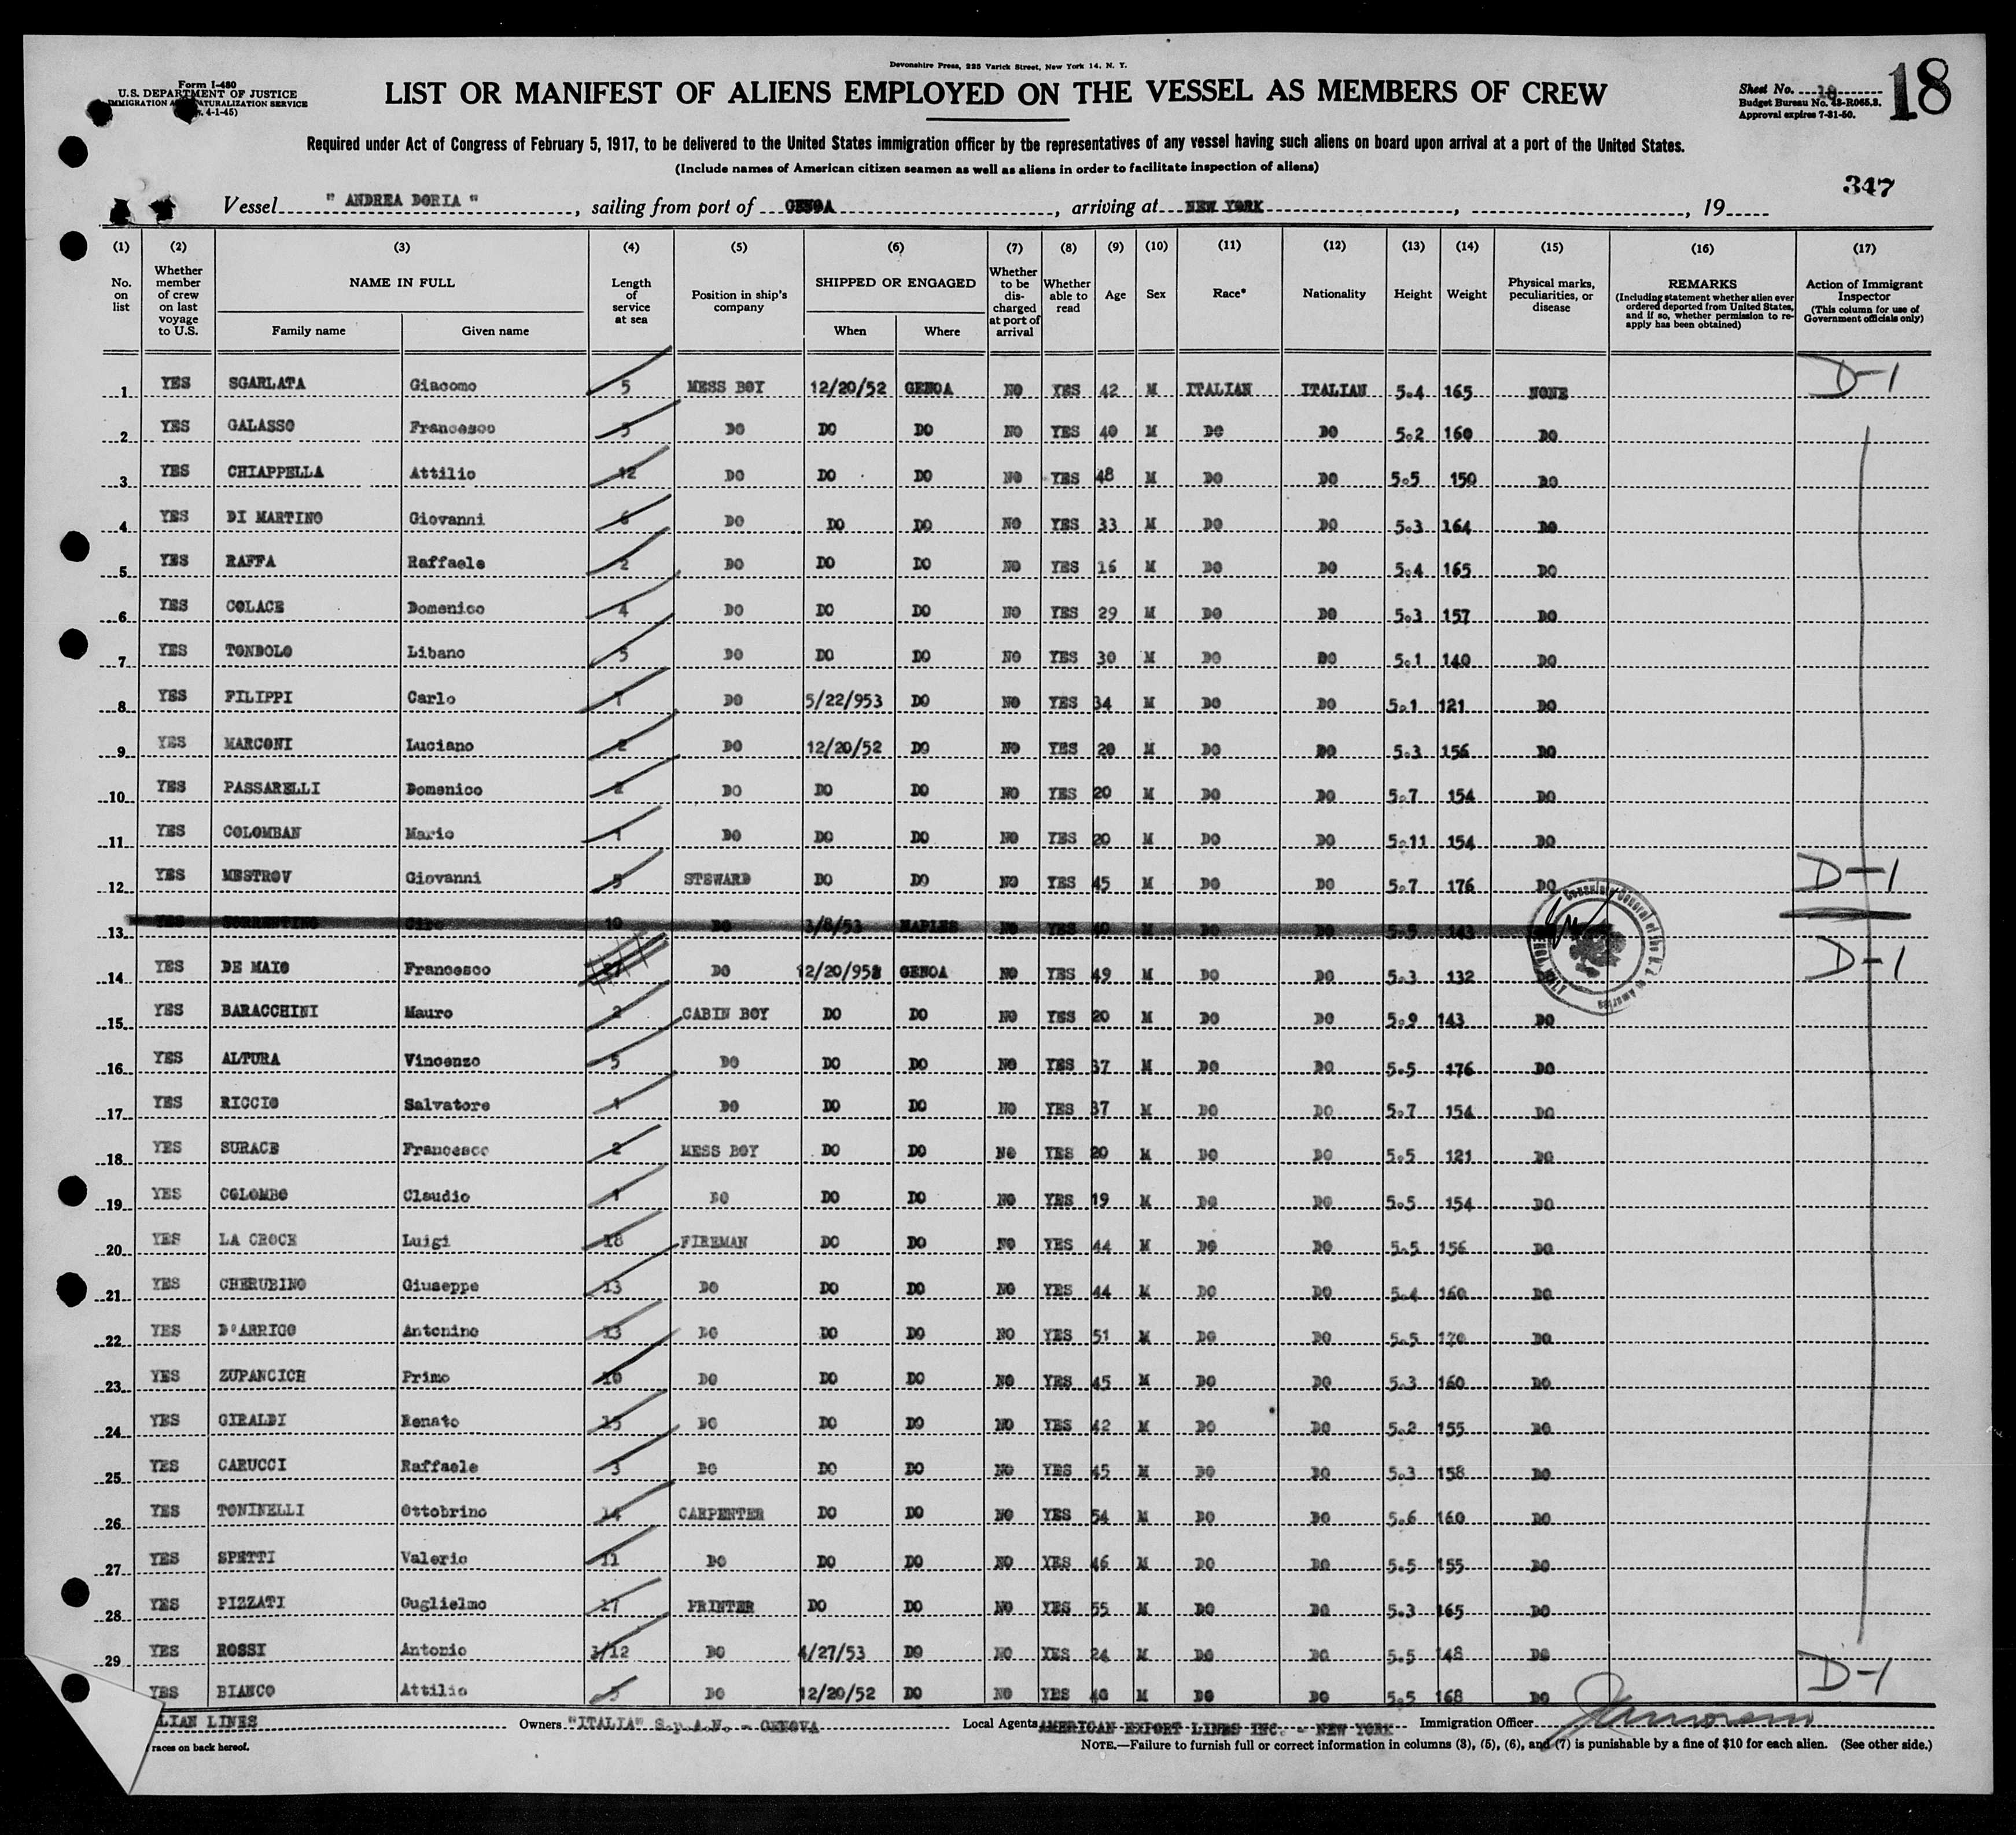 Devonshire Press, 225 Varick Street, New York 14, N. Y.
Form I-480
U.S. DEPARTMENT OF JUSTICE
IMMIGRATION NATURALIZATION SERVICE
4-1-45)
LIST OR MANIFEST OF ALIENS EMPLOYED ON THE VESSEL AS MEMBERS OF CREW
Sheet No. 18
Budget Bureau No. 43-R065.3.
Approval expires 7-31-50.
18
Required under Act of Congress of February 5, 1917, to be delivered to the United States immigration officer by the representatives of any vessel having such aliens on board upon arrival at a port of the United States.
(Include names of American citizen seamen as well as aliens in order to facilitate inspection of aliens)
347
Vessel " ANDREA DORIA ", sailing from port of GENOA, arriving at NEW YORK, , 19
(1) (2) (3) (4) (5) (6) (7) (8) (9) (10) (11) (12) (13) (14) (15) (16) (17)
No. on list
Whether member of crew on last voyage to U.S.
NAME IN FULL
Family name
Given name
Length of service at sea
Position in ship's company
SHIPPED OR ENGAGED
When
Where
Whether to be discharged at port of arrival
Whether able to read
Age
Sex
Race*
Nationality
Height
Weight
Physical marks, peculiarities, or disease
REMARKS
(Including statement whether alien ever ordered deported from United States, and if so, whether permission to reapply has been obtained)
Action of Immigrant Inspector
(This column for use of Government officials only)
1 YES SGARLATA Giacomo 5 MESS BOY 12/20/52 GENOA NO YES 42 M ITALIAN ITALIAN 5.4 165 NONE D-1
2 YES GALASSO Francesco 5 DO DO DO NO YES 40 M DO DO 5.2 160 DO
3 YES CHIAPPELLA Attilio 12 DO DO DO NO YES 48 M DO DO 5.5 150 DO
4 YES DI MARTINO Giovanni 6 DO DO DO NO YES 33 M DO DO 5.3 164 DO
5 YES RAFFA Raffaele 2 DO DO DO NO YES 16 M DO DO 5.4 165 DO
6 YES COLACE Domenico 4 DO DO DO NO YES 29 M DO DO 5.3 157 DO
7 YES TONDOLO Libano 5 DO DO DO NO YES 30 M DO DO 5.1 140 DO
8 YES FILIPPI Carlo 7 DO 5/22/953 DO NO YES 34 M DO DO 5.1 121 DO
9 YES MARCONI Luciano 2 DO 12/20/52 DO NO YES 20 M DO DO 5.3 156 DO
10 YES PASSARELLI Domenico 2 DO DO DO NO YES 20 M DO DO 5.7 154 DO
11 YES COLOMBAN Mario 1 DO DO DO NO YES 20 M DO DO 5.11 154 DO
12 YES MESTROV Giovanni 5 STEWARD DO DO NO YES 45 M DO DO 5.7 176 DO D-1
13 YES SORRENTINO Ciro 10 DO 3/8/53 NAPLES NO YES 40 M DO DO 5.5 143
14 YES DE MAIO Francesco 27 DO 12/20/952 GENOA NO YES 49 M DO DO 5.3 132 D-1
15 YES BARACCHINI Mauro 2 CABIN BOY DO DO NO YES 20 M DO DO 5.9 143 DO
16 YES ALTURA Vincenzo 5 DO DO DO NO YES 37 M DO DO 5.5 176 DO
17 YES RICCIO Salvatore 1 DO DO DO NO YES 37 M DO DO 5.7 154 DO
18 YES SURACE Francesco 2 MESS BOY DO DO NO YES 20 M DO DO 5.5 121 DO
19 YES COLOMBO Claudio 1 DO DO DO NO YES 19 M DO DO 5.5 154 DO
20 YES LA CROCE Luigi 18 FIREMAN DO DO NO YES 44 M DO DO 5.5 156 DO
21 YES CHERUBINO Giuseppe 13 DO DO DO NO YES 44 M DO DO 5.4 160 DO
22 YES D'ARRIGO Antonino 13 DO DO DO NO YES 51 M DO DO 5.5 170 DO
23 YES ZUPANCICH Primo 10 DO DO DO NO YES 45 M DO DO 5.3 160 DO
24 YES GIRALDI Renato 15 DO DO DO NO YES 42 M DO DO 5.2 155 DO
25 YES CARUCCI Raffaele 3 DO DO DO NO YES 45 M DO DO 5.3 158 DO
26 YES TONINELLI Ottobrino 14 CARPENTER DO DO NO YES 54 M DO DO 5.6 160 DO
27 YES SPETTI Valerio 11 DO DO DO NO YES 46 M DO DO 5.5 155 DO
28 YES PIZZATI Guglielmo 17 PRINTER DO DO NO YES 55 M DO DO 5.3 165 DO
29 YES ROSSI Antonio 3/12 DO 4/27/53 DO NO YES 24 M DO DO 5.5 148 DO
YES BIANCO Attilio 5 DO 12/20/52 DO NO YES 40 M DO DO 5.5 168 DO D-1
LIAN LINES Owners "ITALIA" S.p.A.N. - GENOVA Local Agents AMERICAN EXPORT LINES INC. - NEW YORK Immigration Officer
races on back hereof.
NOTE.—Failure to furnish full or correct information in columns (3), (5), (6), and (7) is punishable by a fine of $10 for each alien. (See other side.)